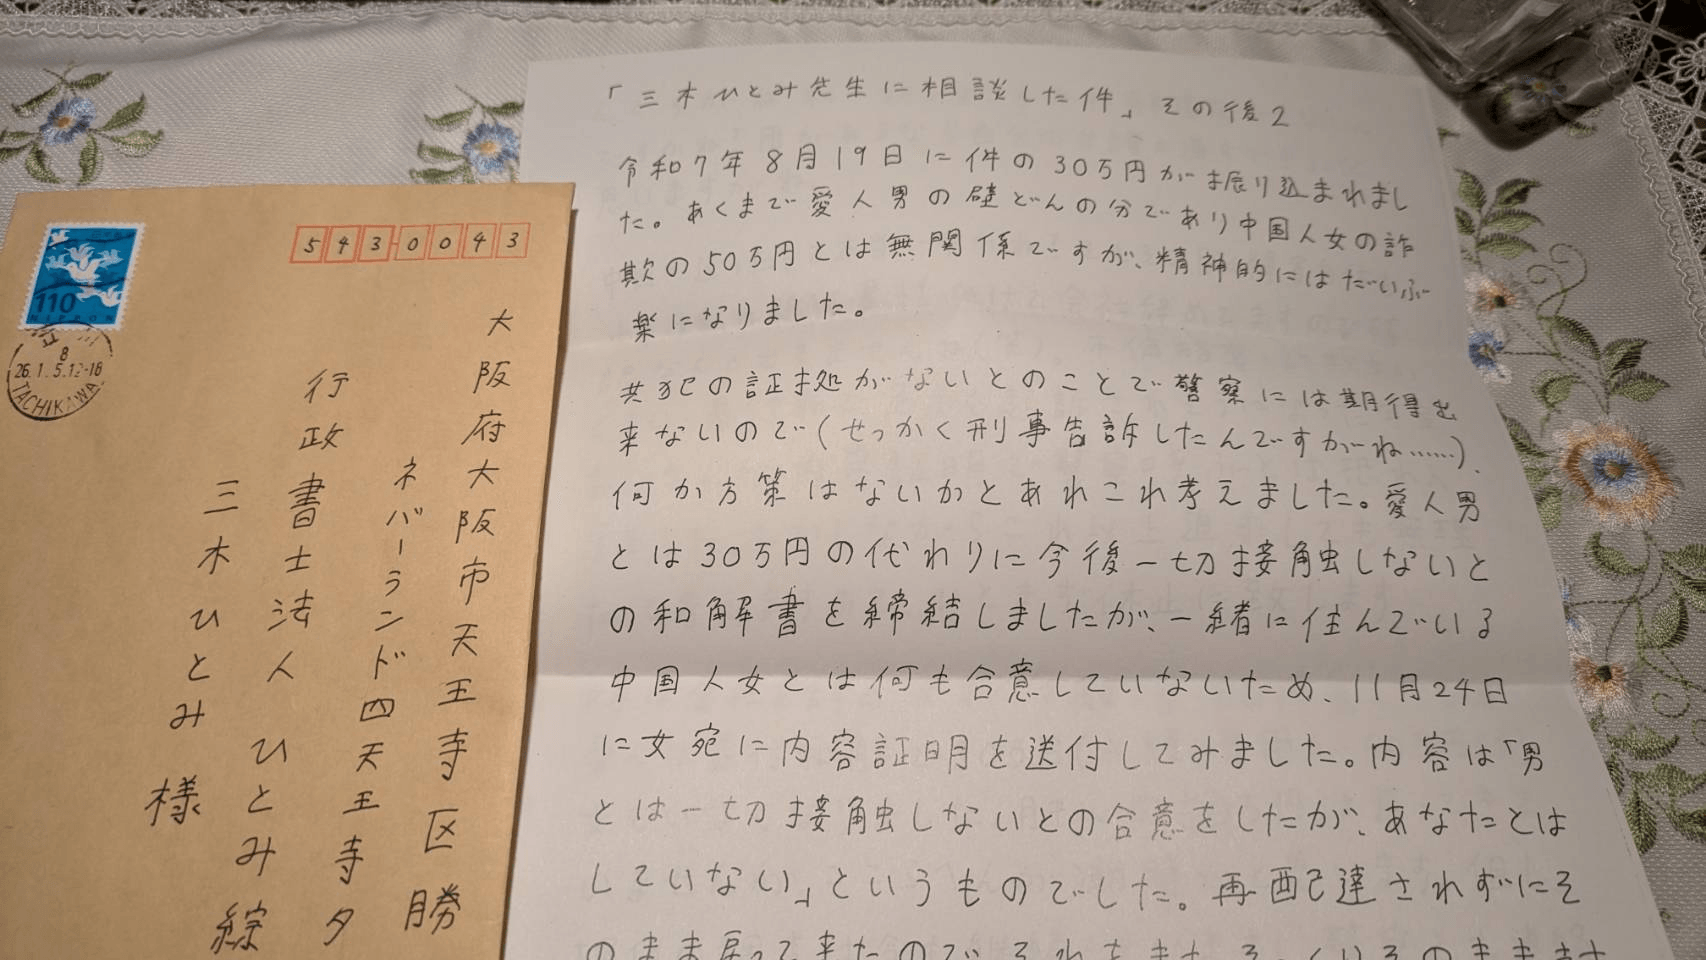 5430043
大阪府大阪市天王寺区勝
ネバーランド四天王寺夕
行政書士法人 ひとみ綜
三木ひとみ 様
110
NIPPON
8
26.1.5.12-18
TACHIKAWA
「三木ひとみ先生に相談した件」その後2
令和7年8月19日に件の30万円が振り込まれまし
た。あくまで愛人男の壁どんの分であり中国人女の詐
欺の50万円とは無関係ですが、精神的にはだいぶ
楽になりました。
共犯の証拠がないとのことで警察には期待出
来ないので(せっかく刑事告訴したんですがね……)、
何か方策はないかとあれこれ考えました。愛人男
とは30万円の代わりに今後一切接触しないと
の和解書を締結しましたが、一緒に住んでいる
中国人女とは何も合意していないため、11月24日
に女宛に内容証明を送付してみました。内容は「男
とは一切接触しないとの合意をしたが、あなたとは
していない」というものでした。再配達されずにそ
のまま戻って来たので